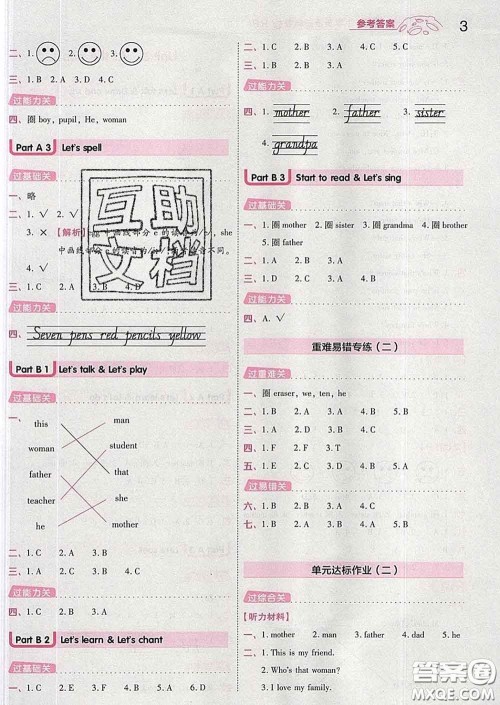 参考答案 3
二、1. 2. 3. 4.
三、1. B 2. A 3. D 4. C
过能力关
四、圈 boy, pupil, He, woman
Part A 3 Let's spell
过基础关
一、略
二、1. √ 2. √
3. × 【解析】
4. √
三、1. B 2. A 3. B 4. D
过能力关
四、Seven pens red pencils yellow
Part B 1 Let's talk & Let's play
过基础关
一、
this man
woman student
father that
teacher she
he mother
二、1. C 2. A 3. B
三、1. C 2. A 3. D 4. B
过能力关
四、1. B 2. A 3. B
Part B 2 Let's learn & Let's chant
过基础关
一、1. C 2. A 3. B 4. D 5. E
二、1. C 2. A 3. B 4. B
三、1. B 2. D 3. A 4. C
过能力关
四、1. mother 2. father 3. sister
4. grandpa
Part B 3 Start to read & Let's sing
过基础关
一、1. 圈 mother 2. 圈 sister 3. 圈 grandma 4. 圈 brother
5. 圈 father
二、1. B 2. A 3. B 4. A
三、1. B 2. D 3. A 4. C
过能力关
四、A. √
重难易错专练（二）
过重难关
一、圈 eraser, we, ten, he
二、1. B 2. B 3. A 4. A 5. B
三、1. B 2. D 3. A 4. C
四、1. F 2. F 3. T
五、1. E 2. C 3. A 4. B 5. D
过易错关
六、1. B 2. B 3. A
七、1. B 2. B 3. A 4. A 5. B
单元达标作业（二）
过综合关
【听力材料】
一、1. mother 2. man 3. father 4. dad 5. he
二、1. This is my friend.
2. Who's that woman?
3. He is my father.
互助
文档
答案圈
MXQE.COM